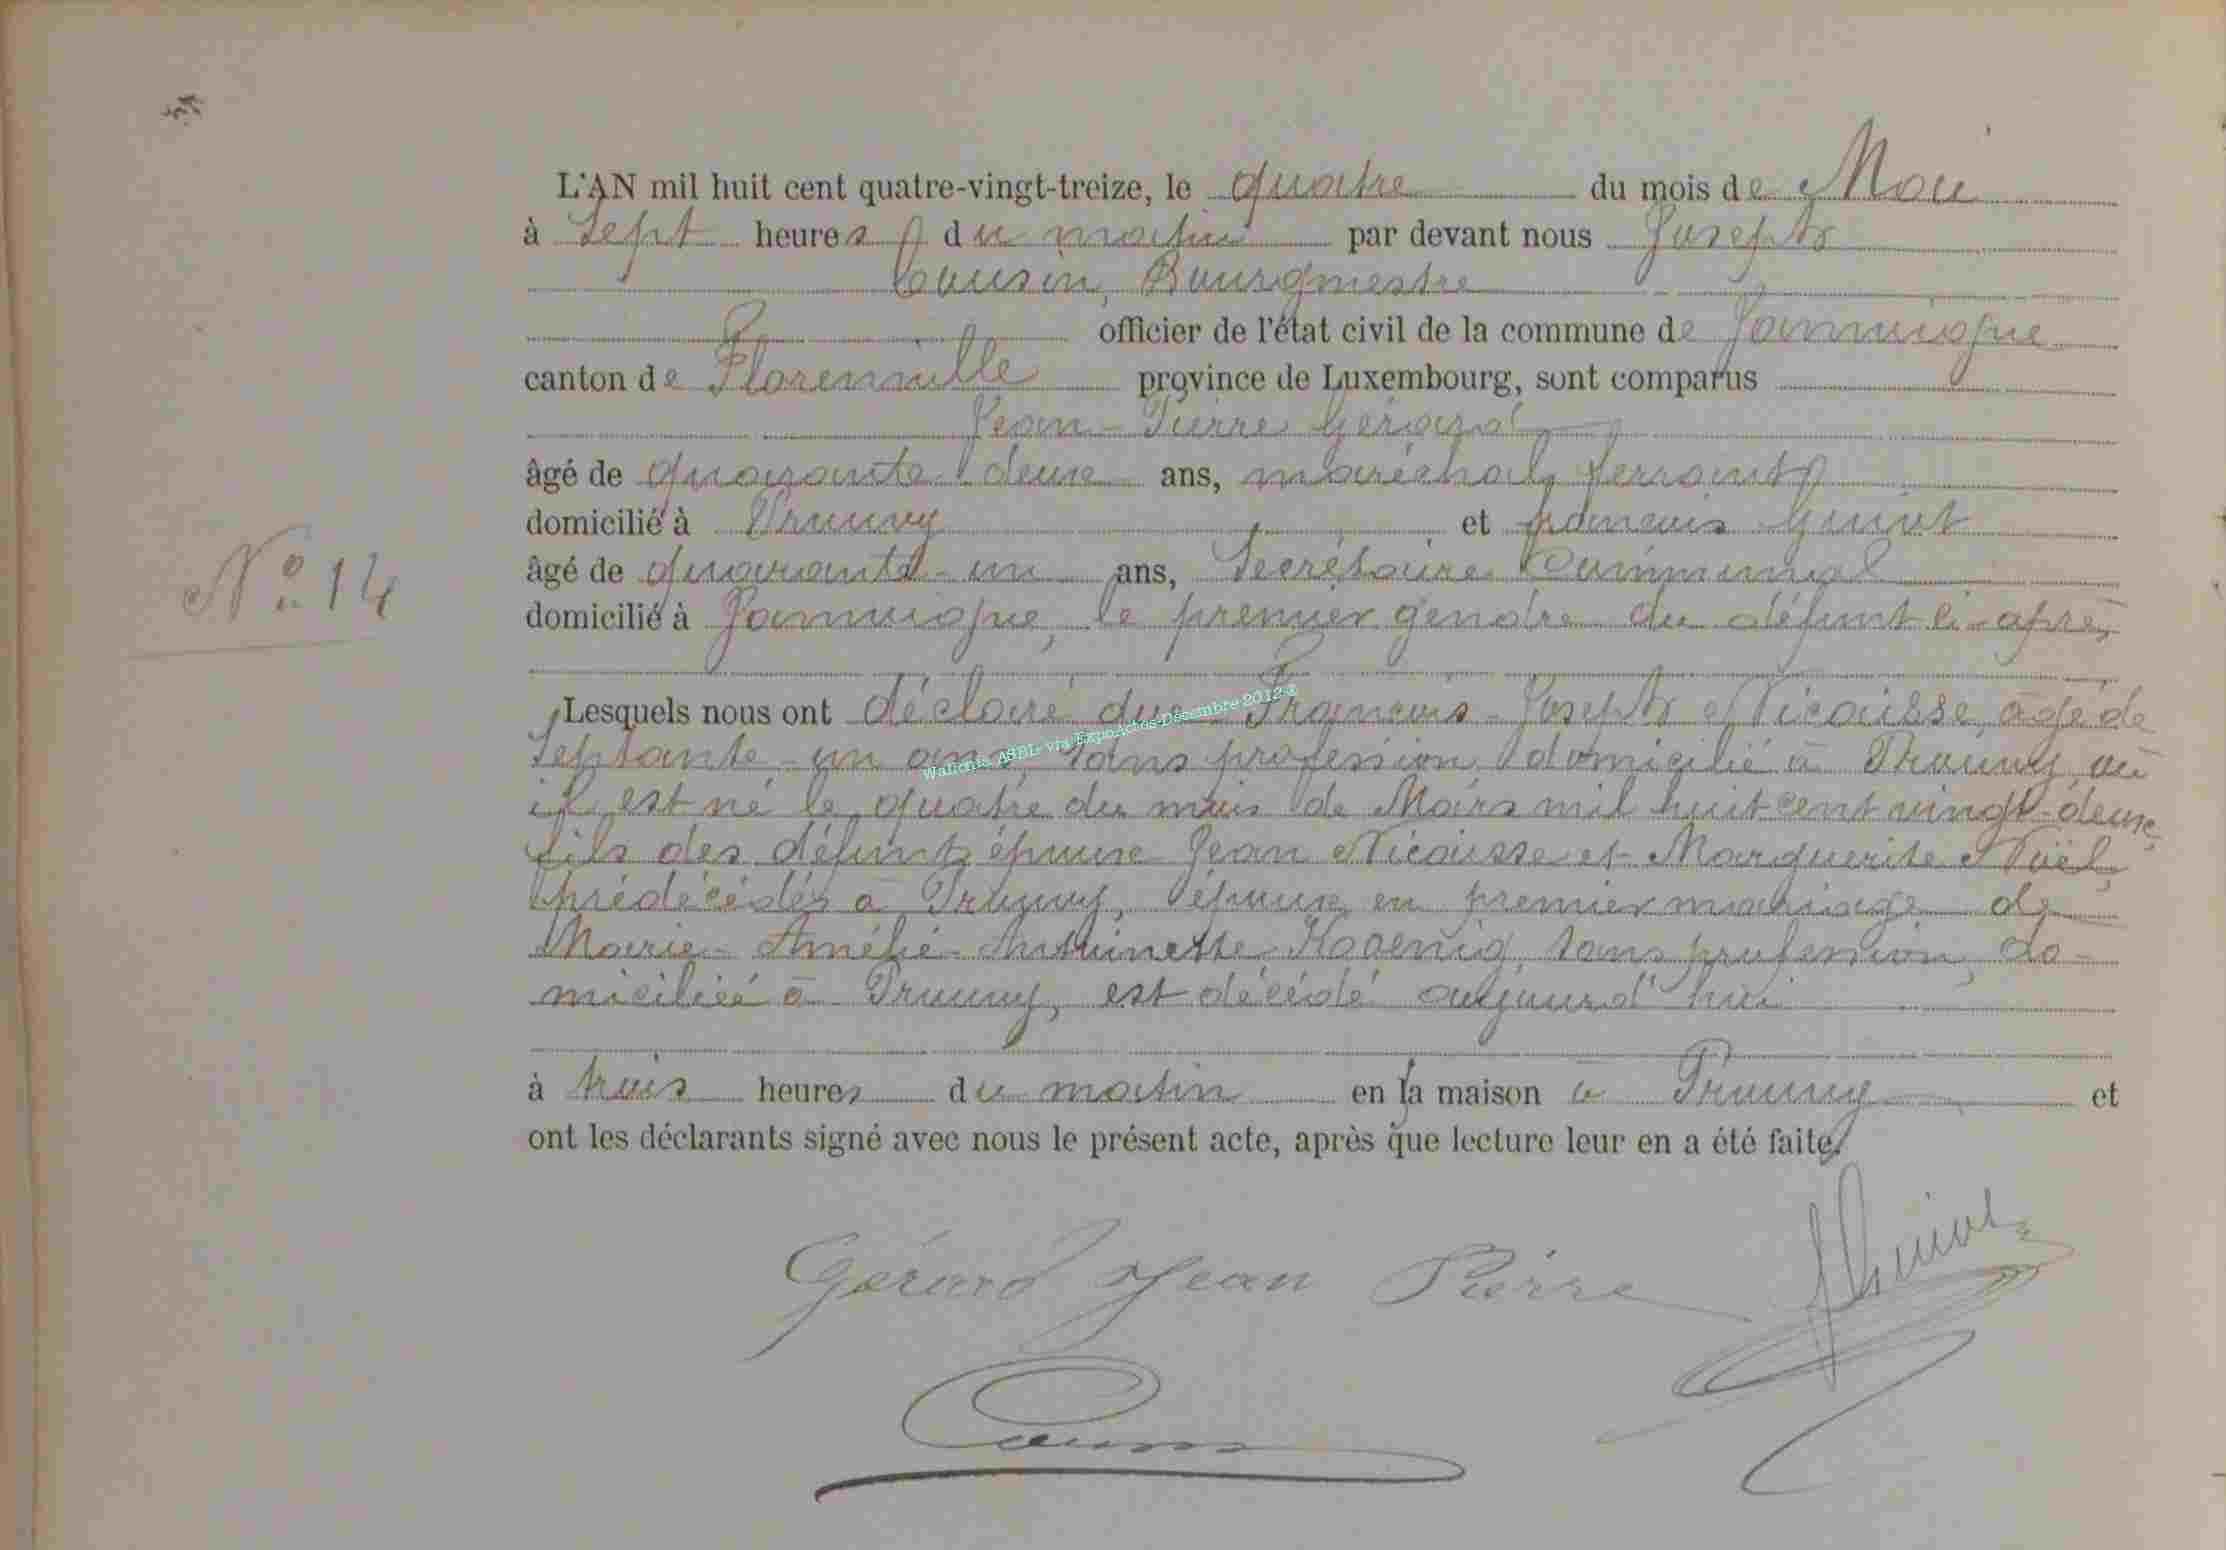 L'AN mil huit cent quatre-vingt-treize, le quatre du mois de Mai
à Sept heures du matin par devant nous Joseph
Cousin, Bourgmestre
officier de l'état civil de la commune de Jamoigne
canton de Florenville province de Luxembourg, sont comparus
Jean-Pierre Gérard
âgé de quarante deux ans, maréchal ferrant
domicilié à Prouvy et françois Guiot
âgé de quarante-un ans, Secrétaire Communal
N° 14
domicilié à Jamoigne, le premier gendre du défunt ci-après,
Lesquels nous ont déclaré que François-Joseph Nicaisse, agé de
Septante-un ans, sans profession, domicilié à Prouvy, où
il est né le quatre du mois de Mars mil huit cent vingt-deux,
fils des défunts époux Jean Nicaisse et Marguerite Noël,
prédécédés à Prouvy, époux en premier mariage de
Marie-Amélie-Antoinette Koaenig, sans profession, do-
miciliée à Prouvy, est décédé aujourd'hui
à trois heures du matin en la maison à Prouvy et
ont les déclarants signé avec nous le présent acte, après que lecture leur en a été faite.
Gérard Jean Pierre
FGuiot
Cousin
Wallonia ASBL via ExpoActes-Décembre 2012©